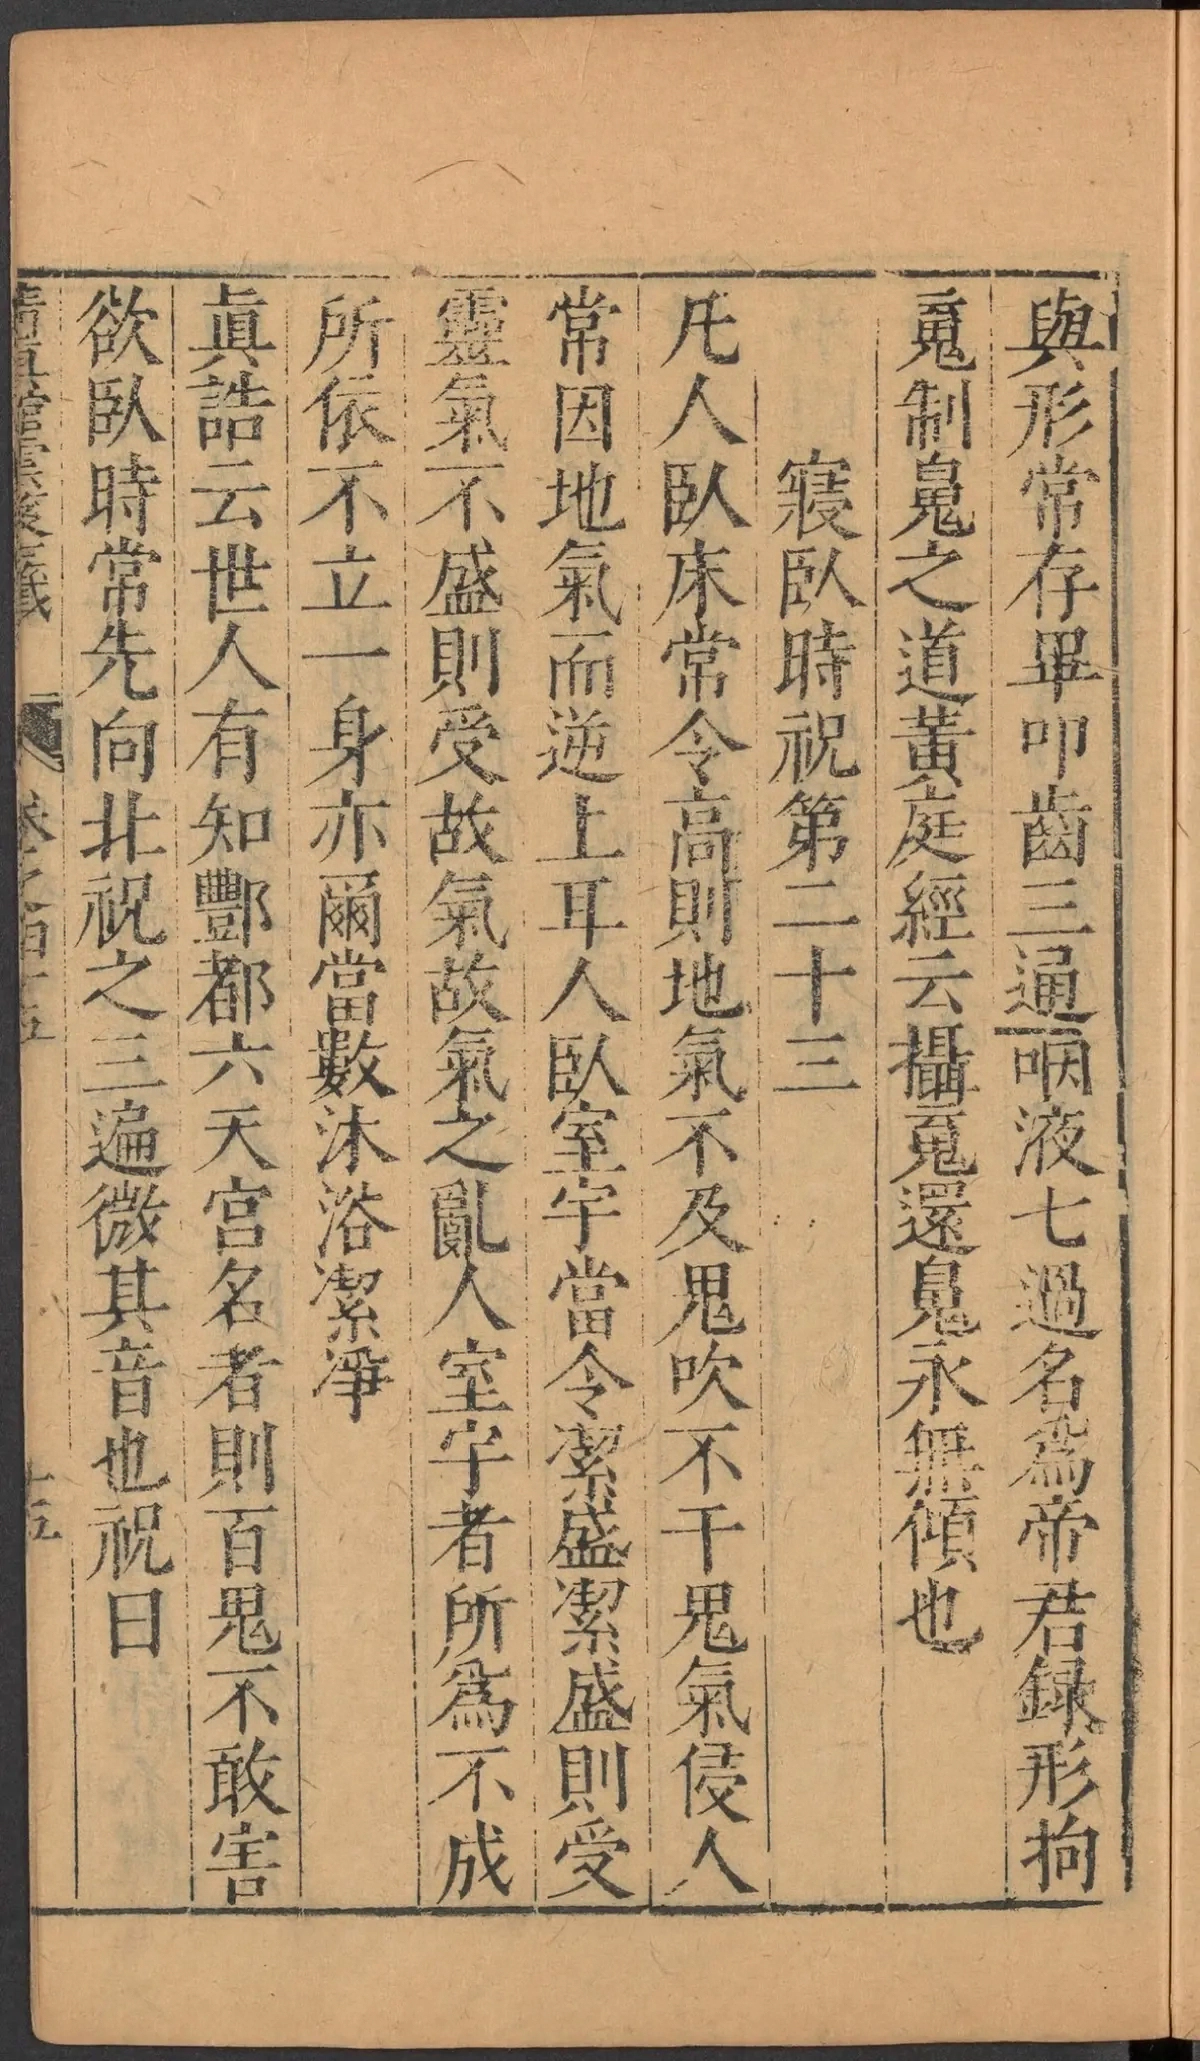 與形常存畢叩齒三通咽液七過名爲帝君録形拘
䰟制鬼之道黃庭經云攝䰟還鬼永無傾也
寢臥時祝第二十三
凡人臥床常令高則地氣不及鬼吹不干鬼氣侵人
常因地氣而逆上耳人臥室宇當令潔盛潔盛則受
靈氣不盛則受故氣故氣之亂人室宇者所爲不成
所依不立一身亦爾當數沐浴潔淨
眞誥云世人有知酆都六天宮名者則百鬼不敢害
欲臥時常先向北祝之三遍微其音也祝曰
卷之百十五
十五